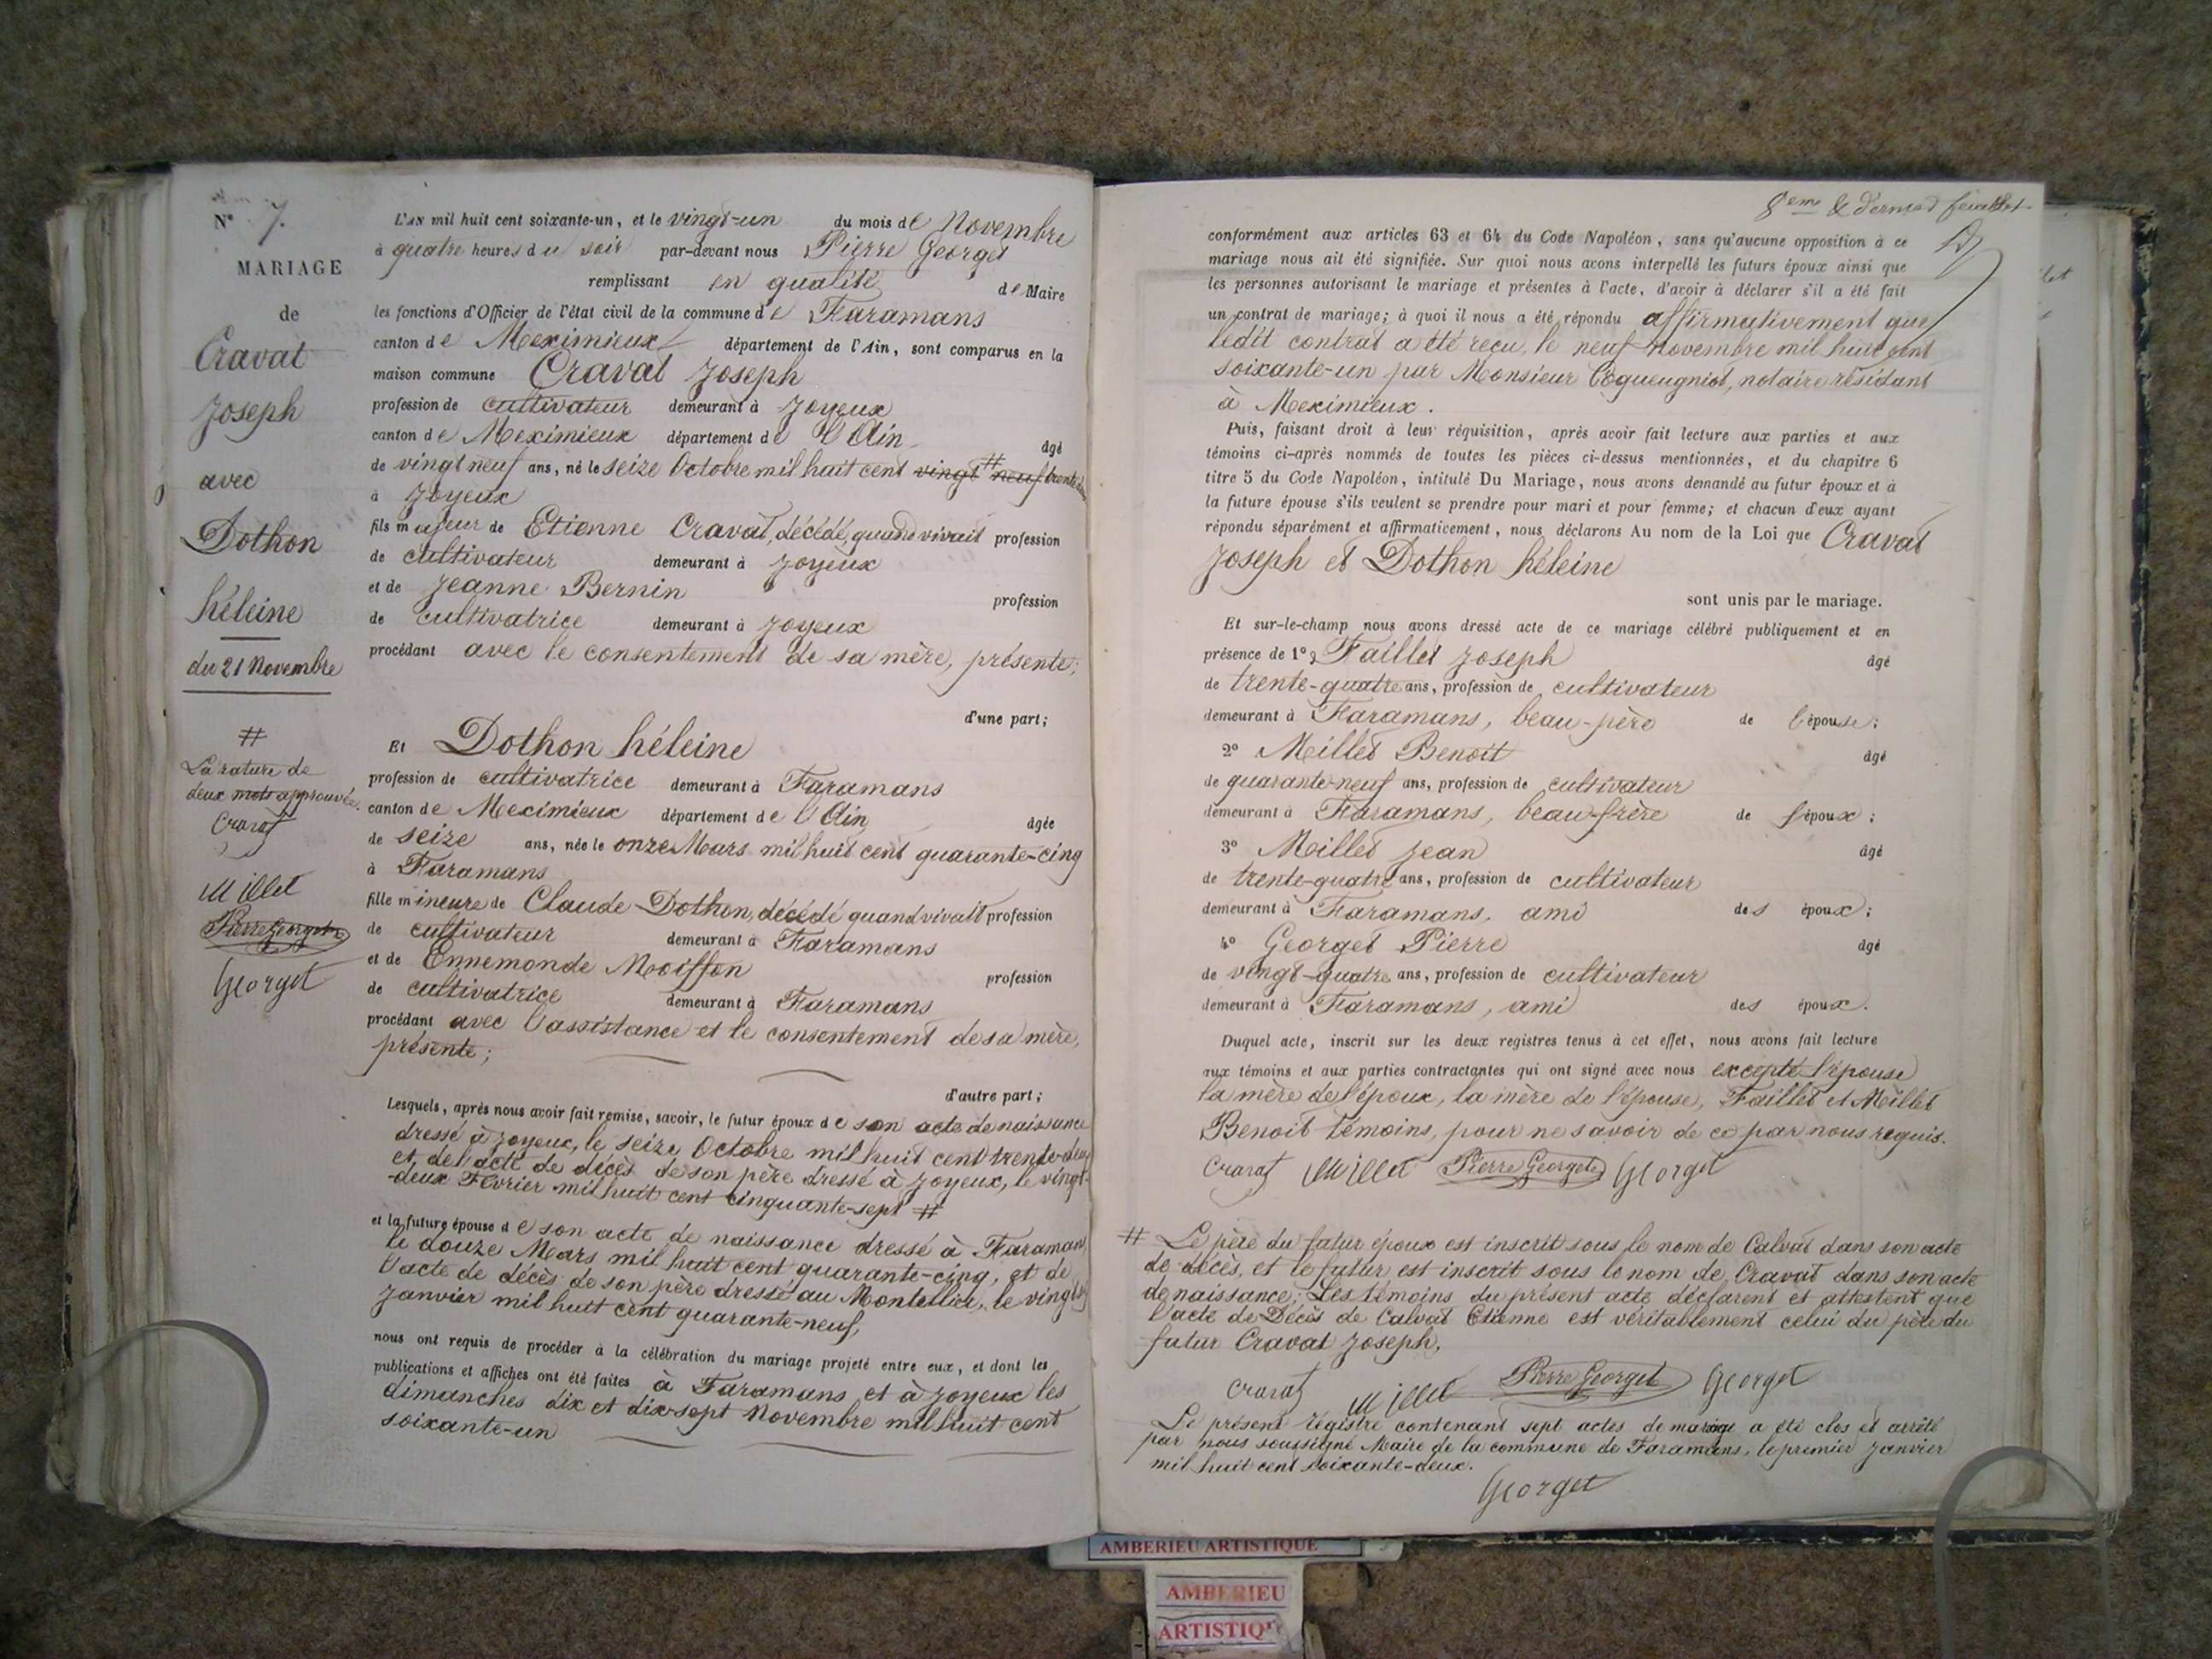 N° 7.
MARIAGE
de
Cravat
Joseph
avec
Dothon
héleine
du 21 Novembre
#
La rature de
deux mots approuvée.
Cravat
Millet
Pierre Georget
Georget
L'AN mil huit cent soixante-un, et le vingt-un du mois de Novembre
à quatre heures du soir par-devant nous Pierre Georget
remplissant en qualité de Maire
les fonctions d'Officier de l'état civil de la commune de Faramans
canton de Meximieux département de l'Ain, sont comparus en la
maison commune Cravat Joseph
profession de cultivateur demeurant à Joyeux
canton de Meximieux département de l'Ain âgé
de vingt neuf ans, né le seize Octobre mil huit cent vingt neuf # trente deux
à Joyeux
fils majeur de Etienne Cravat, décédé, quand vivait profession
de cultivateur demeurant à Joyeux
et de Jeanne Bernin profession
de cultivatrice demeurant à Joyeux
procédant avec le consentement de sa mère, présente;
d'une part;
Et Dothon héleine
profession de cultivatrice demeurant à Faramans
canton de Meximieux département de l'Ain âgée
de seize ans, née le onze Mars mil huit cent quarante-cinq
à Faramans
fille mineure de Claude Dothon, décédé quand vivait profession
de cultivateur demeurant à Faramans
et de Ennemonde Moisson profession
de cultivatrice demeurant à Faramans
procédant avec l'assistance et le consentement de sa mère,
présente;
d'autre part;
Lesquels, après nous avoir fait remise, savoir, le futur époux de son acte de naissance
dressé à Joyeux, le seize Octobre mil huit cent trente-deux
et de l'acte de décès de son père dressé à Joyeux, le vingt-
deux Février mil huit cent cinquante-sept #
et la future épouse de son acte de naissance dressé à Faramans
le douze Mars mil huit cent quarante-cinq, et de
l'acte de décès de son père dressé au Montellier, le vingt
Janvier mil huit cent quarante-neuf,
nous ont requis de procéder à la célébration du mariage projeté entre eux, et dont les
publications et affiches ont été faites à Faramans et à Joyeux les
dimanches dix et dix-sept Novembre mil huit cent
soixante-un
8eme & dernier feuillet
conformément aux articles 63 et 64 du Code Napoléon, sans qu'aucune opposition à ce
mariage nous ait été signifiée. Sur quoi nous avons interpellé les futurs époux ainsi que
les personnes autorisant le mariage et présentes à l'acte, d'avoir à déclarer s'il a été fait
un contrat de mariage; à quoi il nous a été répondu affirmativement que
ledit contrat a été reçu, le neuf Novembre mil huit cent
soixante-un par Monsieur Coqueugniot, notaire résidant
à Meximieux.
Puis, faisant droit à leur réquisition, après avoir fait lecture aux parties et aux
témoins ci-après nommés de toutes les pièces ci-dessus mentionnées, et du chapitre 6
titre 5 du Code Napoléon, intitulé Du Mariage, nous avons demandé au futur époux et à
la future épouse s'ils veulent se prendre pour mari et pour femme; et chacun d'eux ayant
répondu séparément et affirmativement, nous déclarons Au nom de la Loi que Cravat
Joseph et Dothon héleine
sont unis par le mariage.
Et sur-le-champ nous avons dressé acte de ce mariage célébré publiquement et en
présence de 1° Faillet Joseph âgé
de trente-quatre ans, profession de cultivateur
demeurant à Faramans, beau-père de l'épouse;
2° Millet Benoit âgé
de quarante-neuf ans, profession de cultivateur
demeurant à Faramans, beau-frère de l'époux;
3° Millet Jean âgé
de trente-quatre ans, profession de cultivateur
demeurant à Faramans, ami des époux;
4° Georget Pierre âgé
de vingt-quatre ans, profession de cultivateur
demeurant à Faramans, ami des époux.
Duquel acte, inscrit sur les deux registres tenus à cet effet, nous avons fait lecture
aux témoins et aux parties contractantes qui ont signé avec nous excepté l'épouse
la mère de l'époux, la mère de l'épouse, Faillet et Millet
Benoit témoins, pour ne savoir de ce par nous requis.
Cravat Millet Pierre Georget Georget
# Le père du futur époux est inscrit sous le nom de Calvat dans son acte
de décès, et le futur est inscrit sous le nom de Cravat dans son acte
de naissance; Les témoins du présent acte déclarent et attestent que
l'acte de Décès de Calvat Etienne est véritablement celui du père du
futur Cravat Joseph.
Cravat Millet Pierre Georget Georget
Le présent régistre contenant sept actes de mariage a été clos et arrêté
par nous soussigné Maire de la commune de Faramans, le premier Janvier
mil huit cent soixante-deux.
Georget
AMBERIEU ARTISTIQUE
AMBERIEU